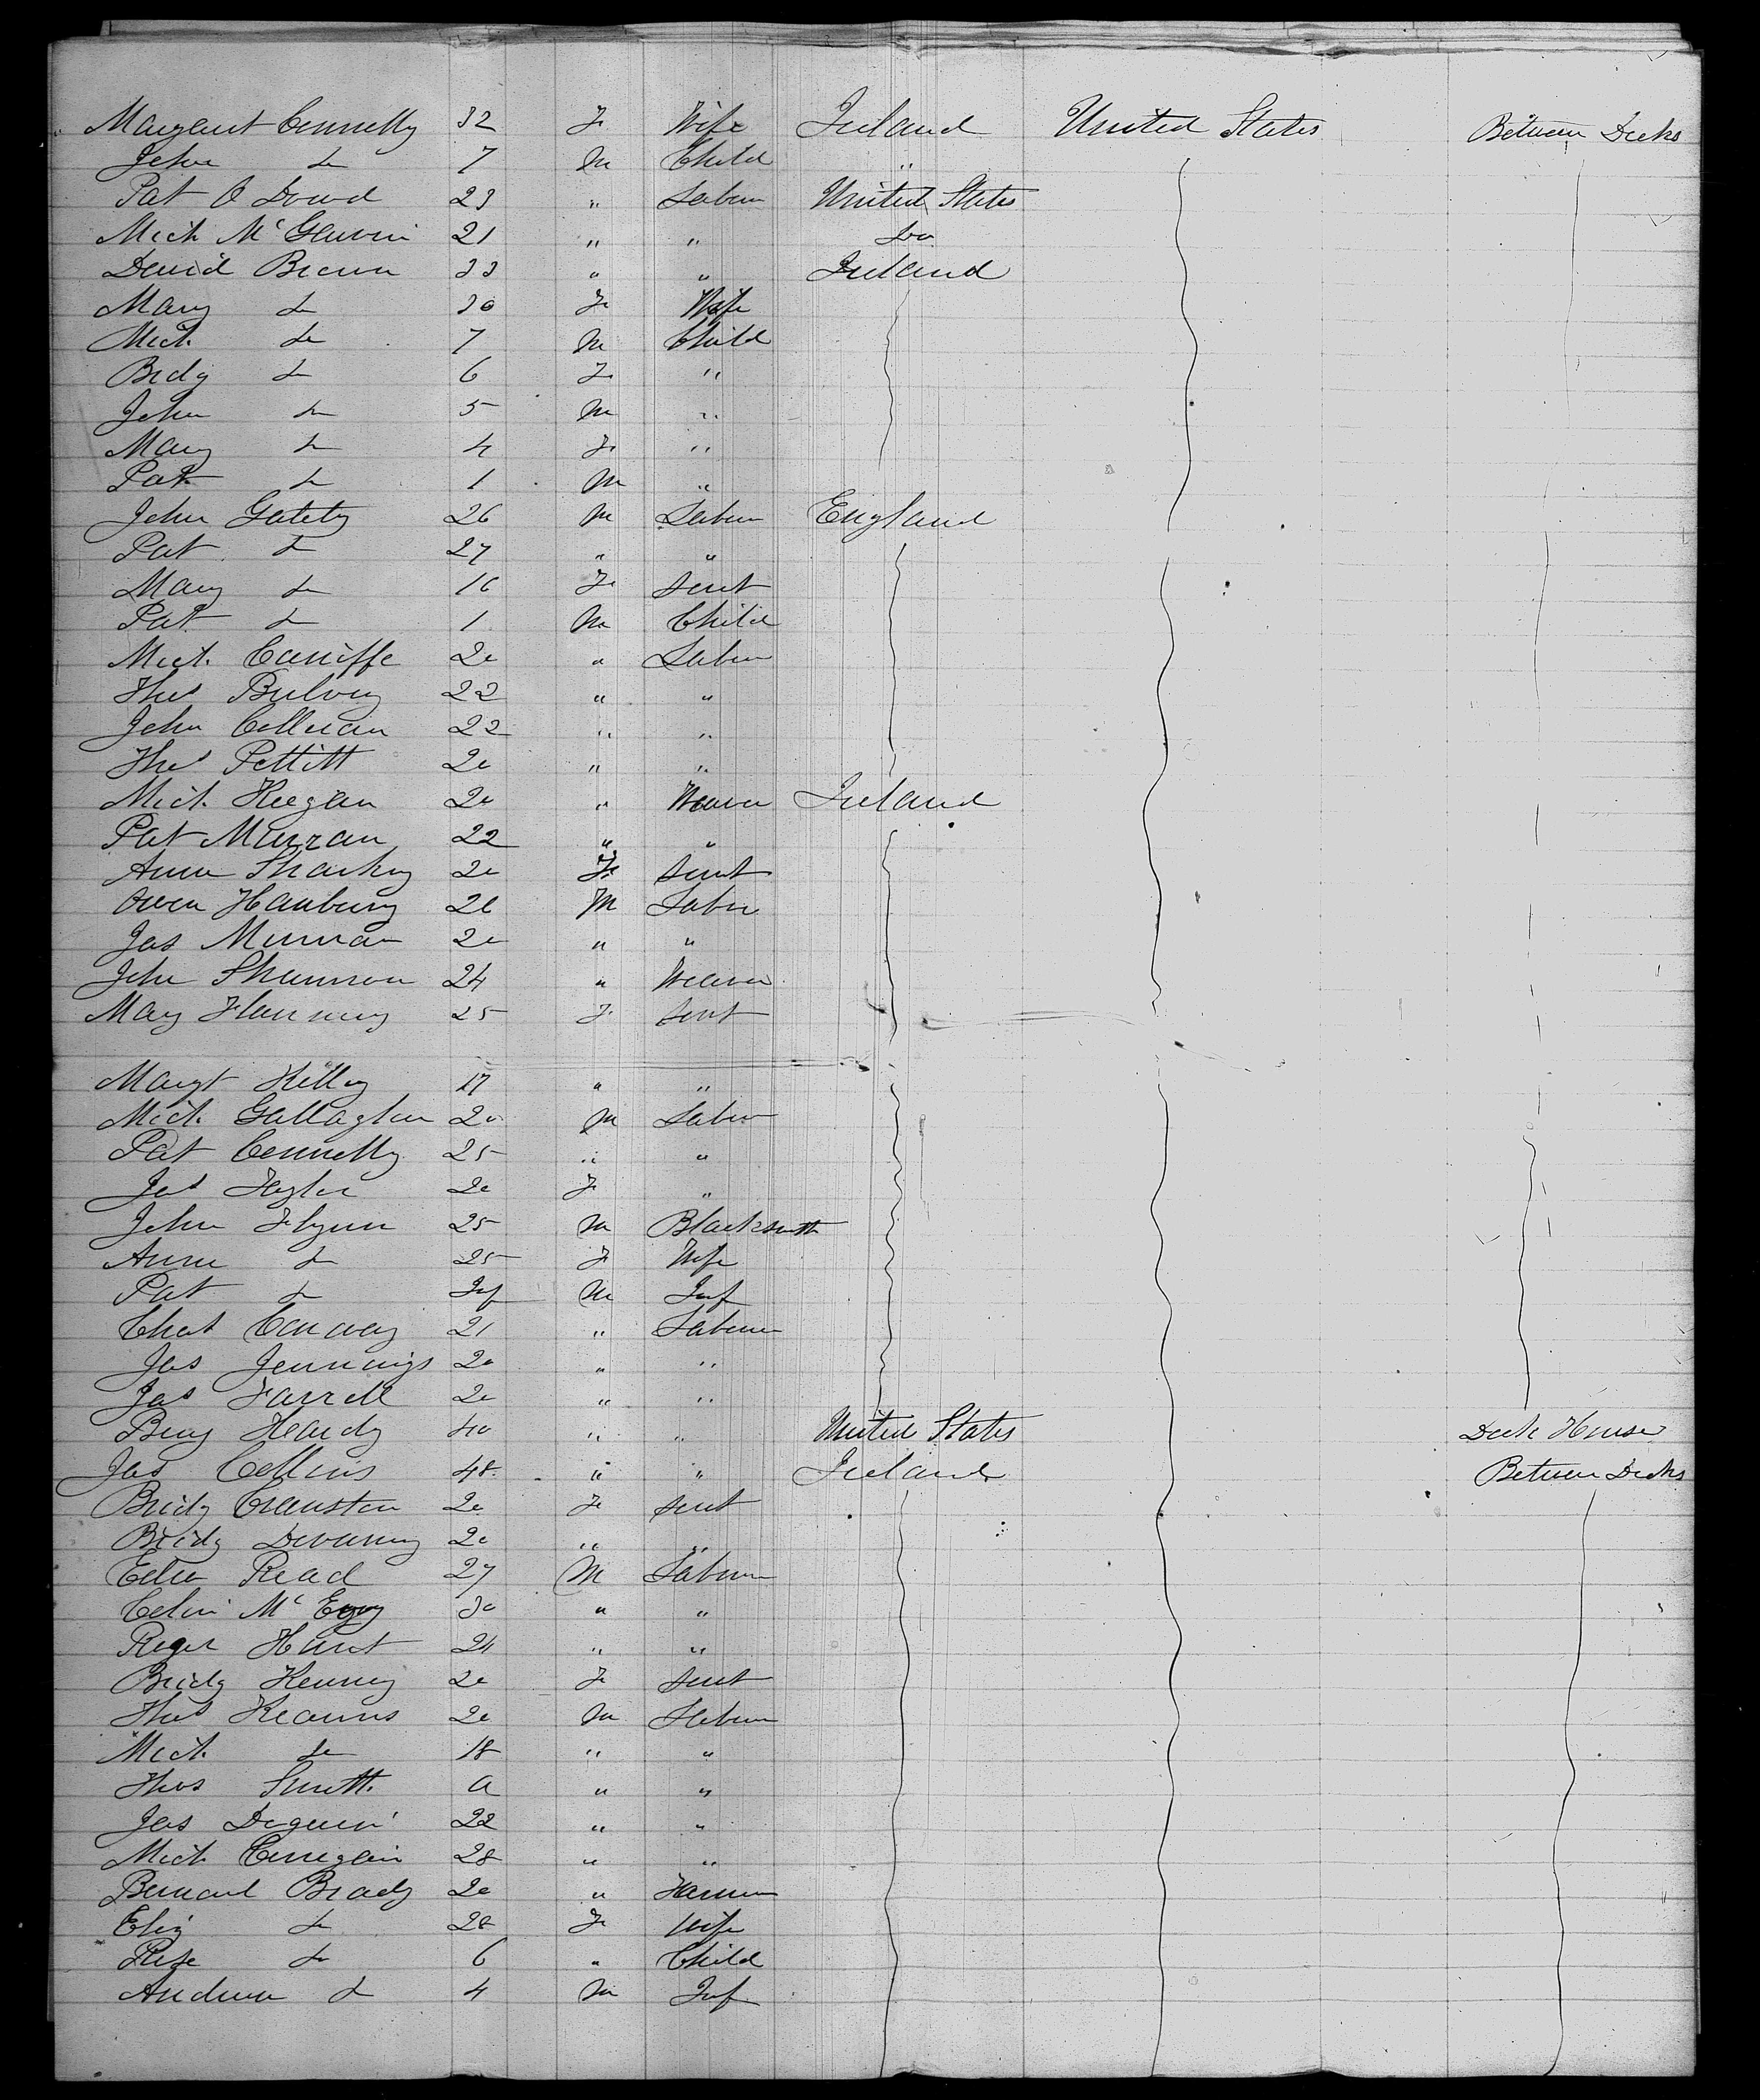 Margaret Connelly 32 F Wife Ireland United States Between Decks
John do 7 M Child "
Pat O Dowd 23 " Labour United States
Mich McGarvin 21 " " Do
David Brown 33 " " Ireland
Mary do 30 F Wife
Mich do 7 M Child
Bridg do 6 F "
John do 5 M "
Mary do 4 F "
Pat do 1 M "
John Gately 26 M Labour England
Pat do 27 " "
Mary do 16 F Servt
Pat do 1 M Child
Mich Cuniffe 20 " Labour
Thos 22 " "
John 22 " "
Thos Pettitt 20 " "
Mich Keegan 20 " Weaver Ireland
Pat Murran 22 " "
Anne Sharkey 20 F Servt
Owen Hanbury 20 M Labr
Jas 20 " "
John Shannon 24 " Weaver
Mary Flannery 25 F Servt
Margt Kelly 17 " "
Mich Gallagher 20 M Labour
Pat Connelly 25 " "
Jas Taylor 20 F "
John Flynn 25 M Blacksmith
Anne do 25 F Wife
Pat do Inf M Inf
Chas Conway 21 " Labour
Jas Jennings 20 " "
Jas Farrell 20 " "
Benj Heardy 40 " " United States Deck House
Jas Collins 48 " " Ireland Between Decks
Bridg Cranston 20 F Servt
Bridg Devanny 20 " "
Read 27 M Labour
Mc 30 " "
Roger Hunt 24 " "
Bridg Kenney 20 F Servt
Thos Kearns 20 M Labour
Mich do 18 " "
Thos Smith a " "
Jas 22 " "
Mich Corregain 28 " "
Bernard Brady 20 " Farmer
Eliz do 28 F Wife
Rose do 6 " Child
Andrew do 4 M Inf